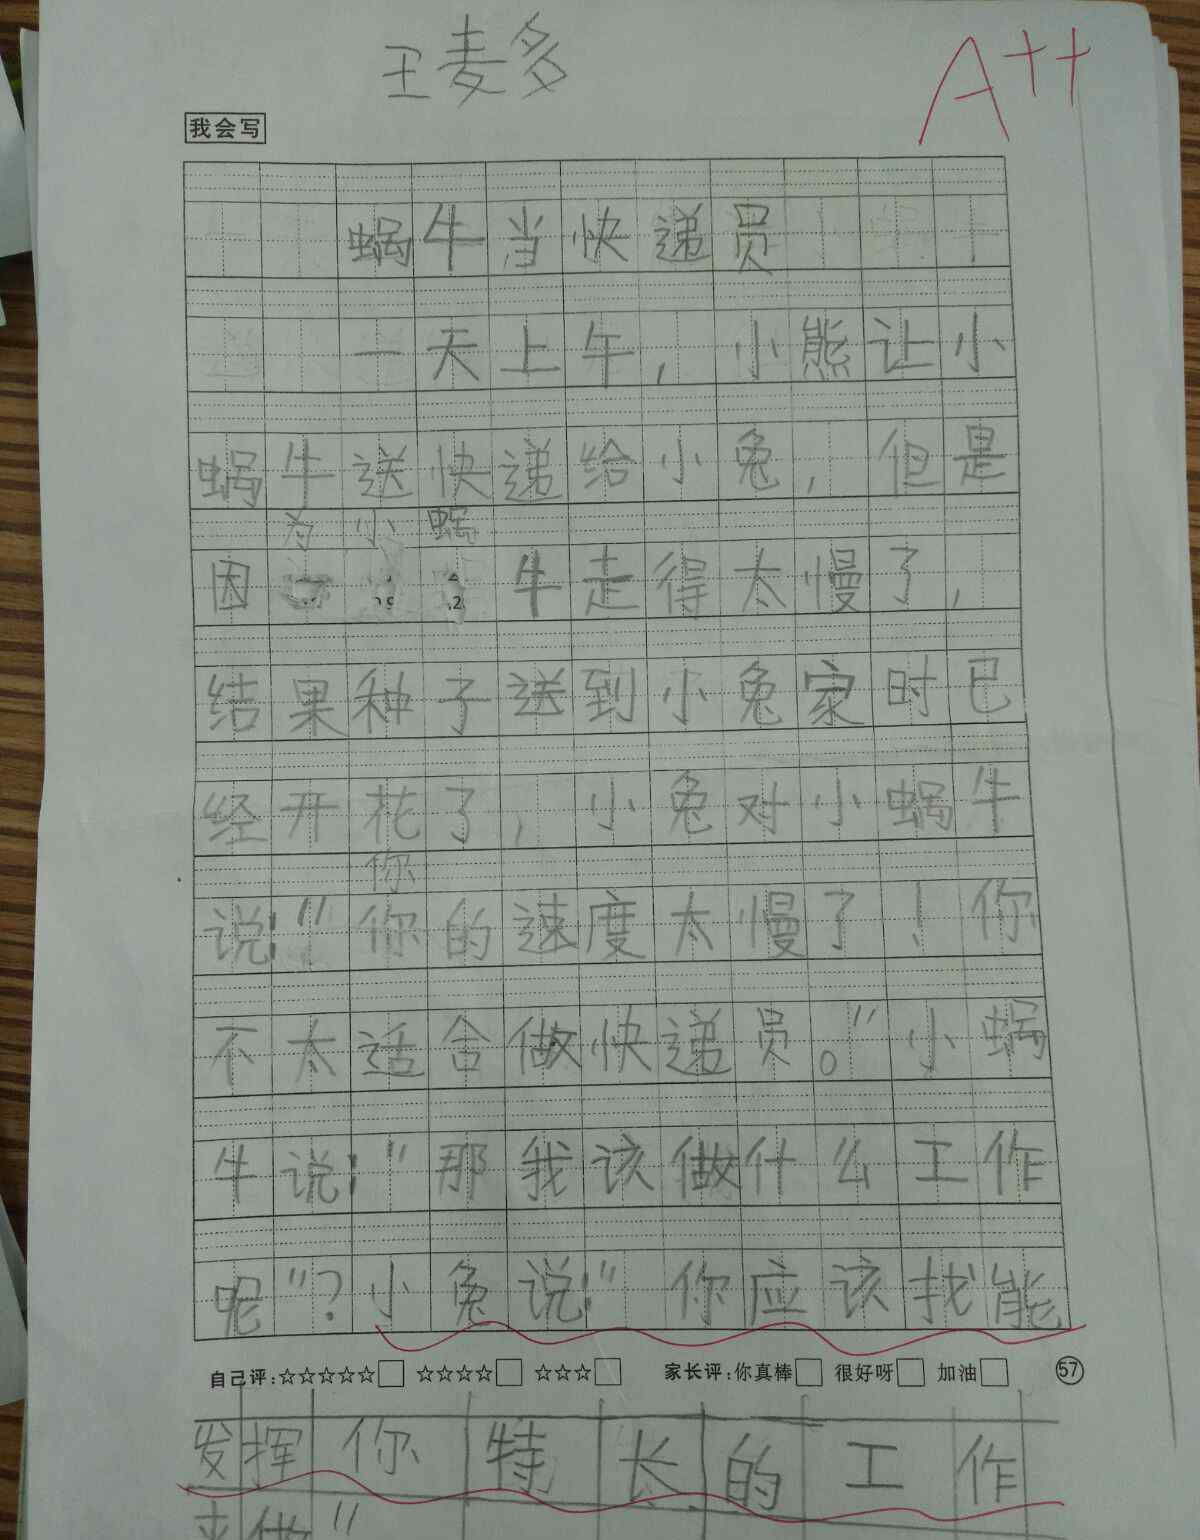 王麦多
A++
我会写
蜗牛当快递员
一天上午，小熊让小
蜗牛送快递给小兔，但是
为小蜗
因牛走得太慢了，
结果种子送到小兔家时已
经开花了，小兔对小蜗牛
你
说："你的速度太慢了！你
不太适合做快递员。"小蜗
牛说："那我该做什么工作
呢"？小兔说："你应该找能
自己评：☆☆☆☆☆□ ☆☆☆☆□ ☆☆☆□ 家长评：你真棒□ 很好呀□ 加油□ 57
发挥你特长的工作
来做"